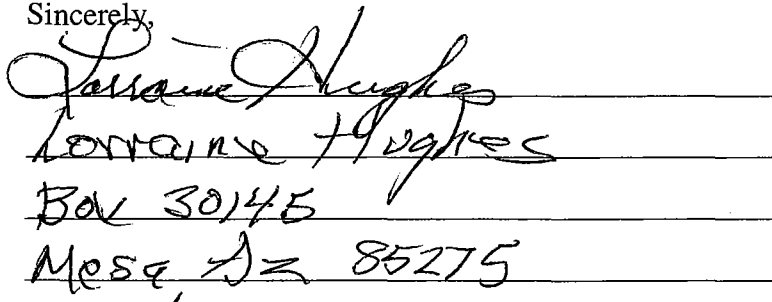 Sincerely,
Lorraine Hughes
Lorraine Hughes
Box 30145
Mesa, Az 85275